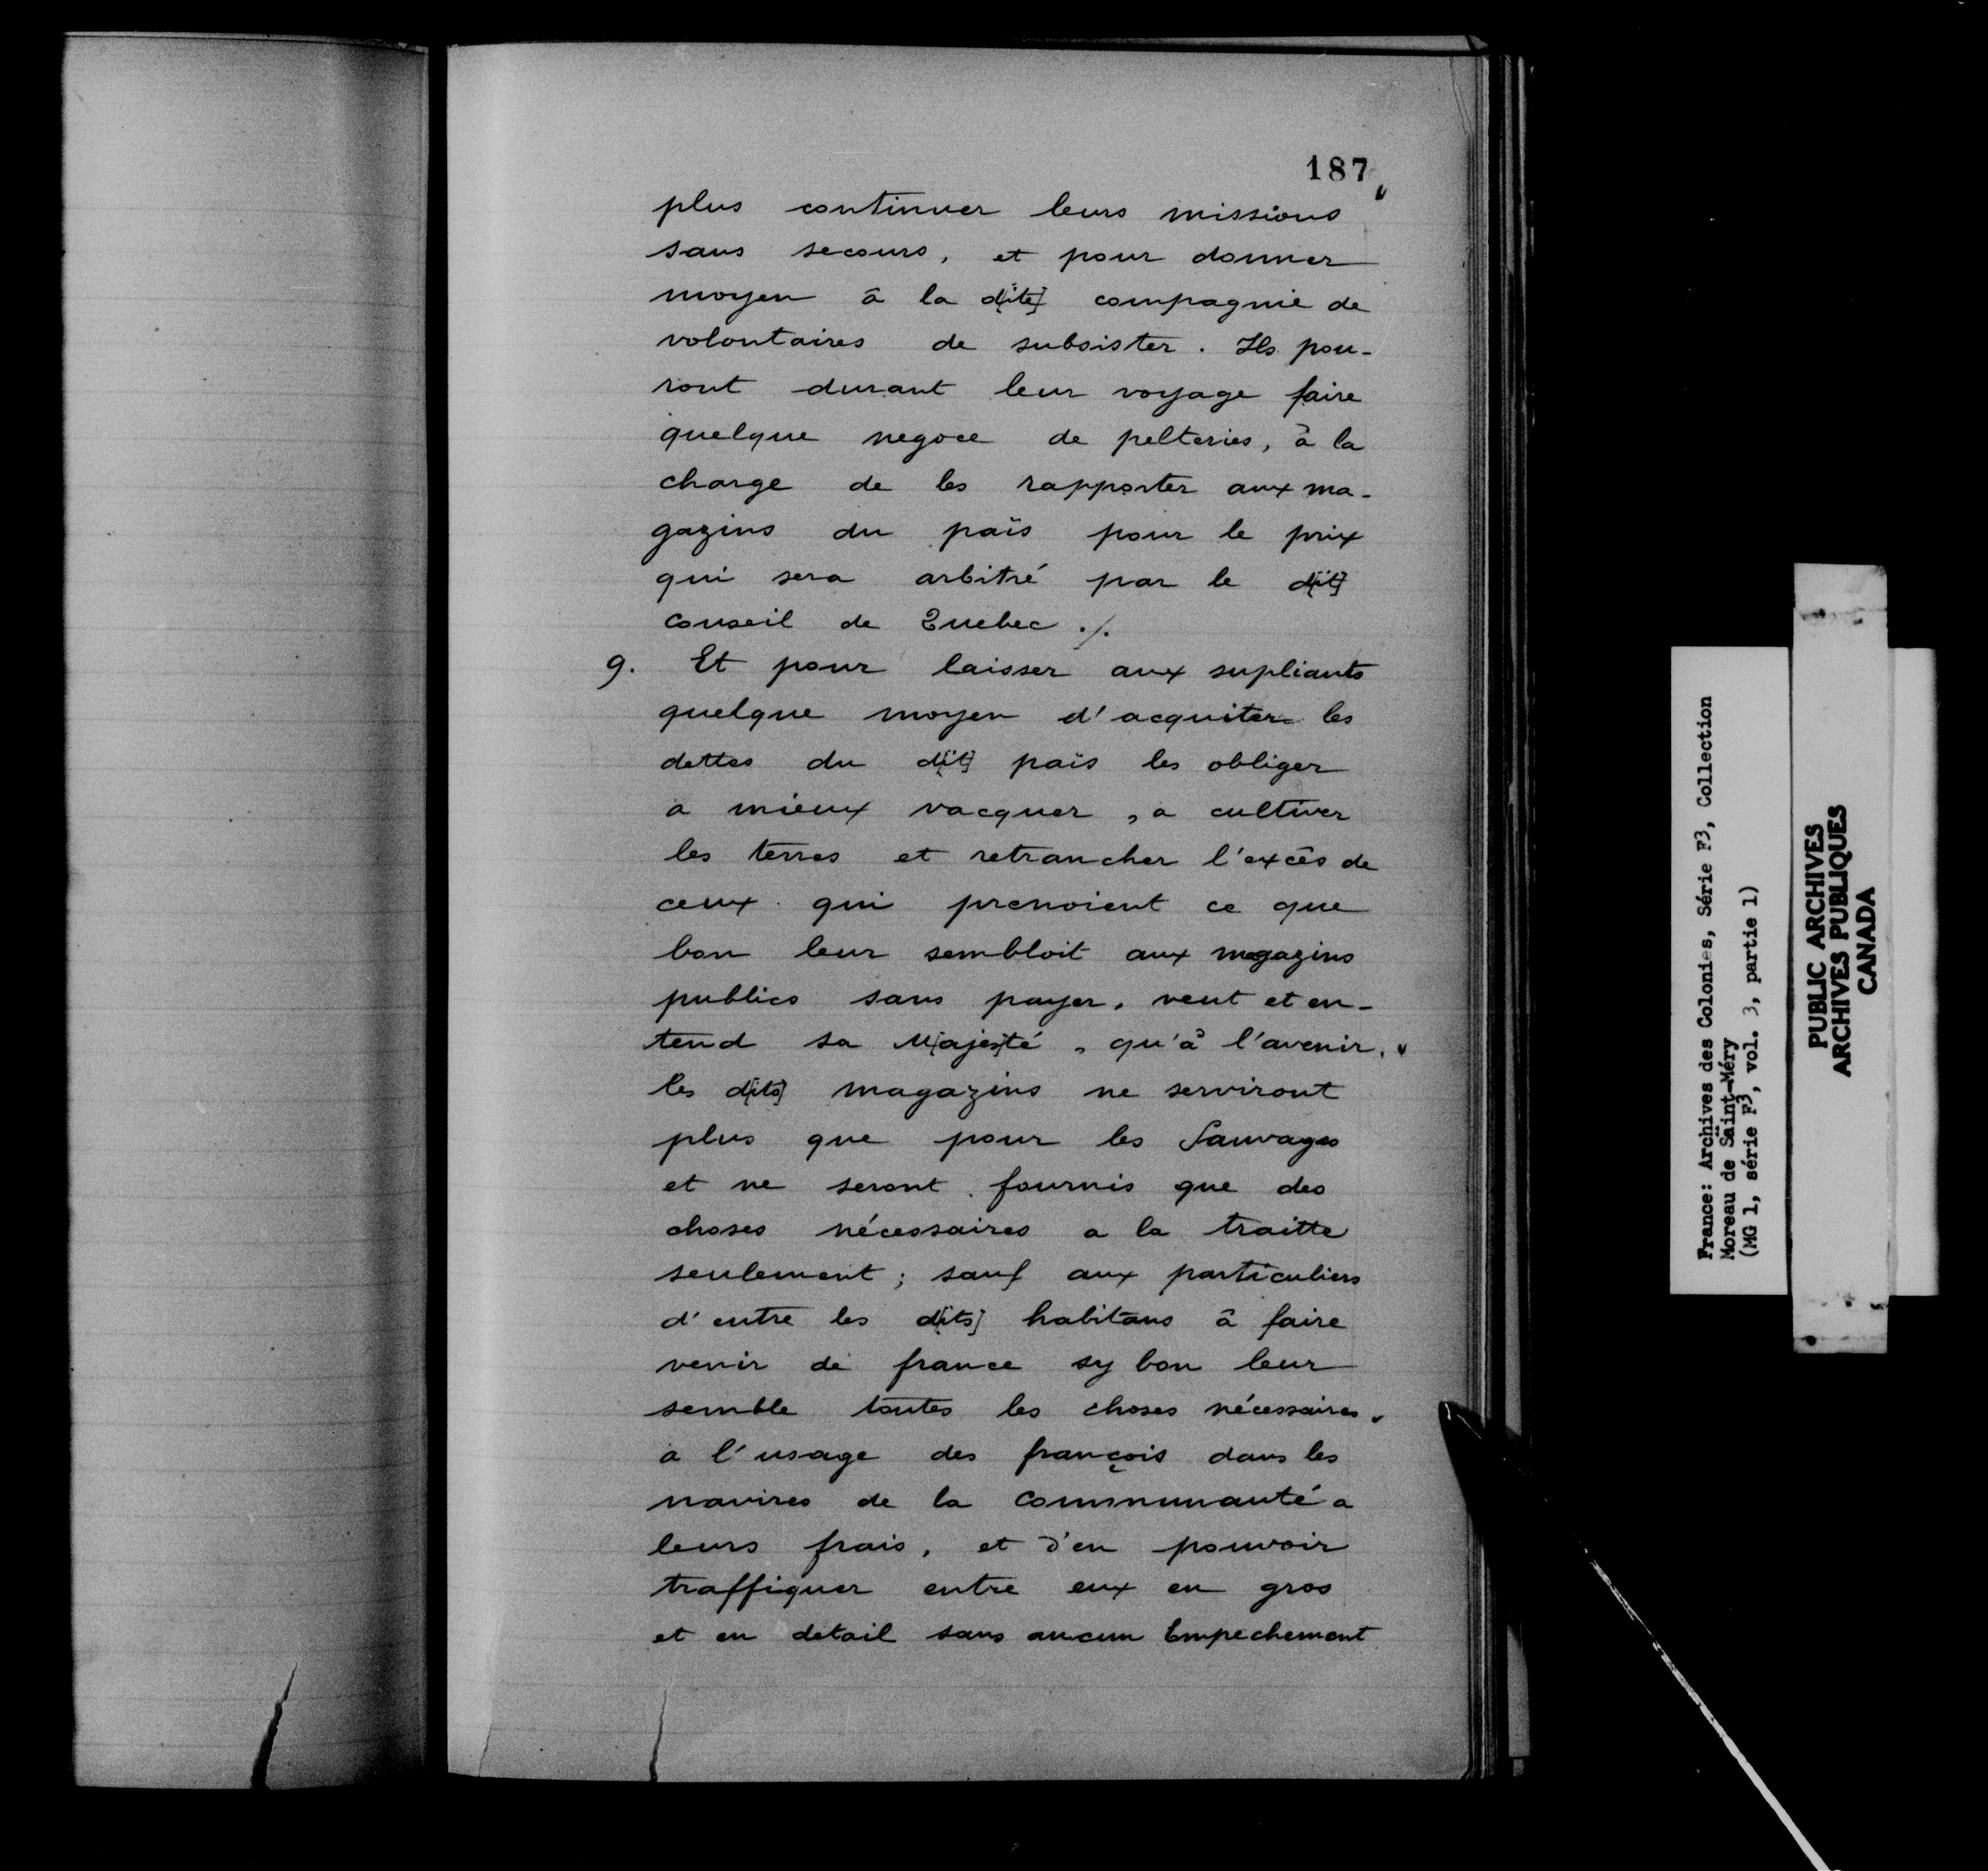 187
plus continuer leurs missions
sans secours, et pour donner
moyen à la d[ite] compagnie de
volontaires de subsister. Ils pou-
ront durant leur voyage faire
quelque negoce de pelteries, à la
charge de les rapporter aux ma-
gazins du païs pour le prix
qui sera arbitré par le d[it]
conseil de Quebec ./.
9. Et pour laisser aux supliants
quelque moyen d'acquiter les
dettes du d[it] païs les obliger
a mieux vacquer, a cultiver
les terres et retrancher l'excès de
ceux qui prenoient ce que
bon leur sembloit aux magazins
publics sans payer, veut et en-
tend sa M[ajes]té, qu'à l'avenir,
les d[its] magazins ne serviront
plus que pour les Sauvages
et ne seront fournis que des
choses nécessaires a la traitte
seulement; sauf aux particuliers
d'entre les d[its] habitans à faire
venir de france sy bon leur
semble toutes les choses nécessaires
a l'usage des françois dans les
navires de la Communauté a
leurs frais, et d'en pouvoir
traffiquer entre eux en gros
et en detail sans aucun Empechement
France: Archives des Colonies, Série F3, Collection
Moreau de Saint-Méry
(MG 1, série F3, vol. 3, partie 1)
PUBLIC ARCHIVES
ARCHIVES PUBLIQUES
CANADA